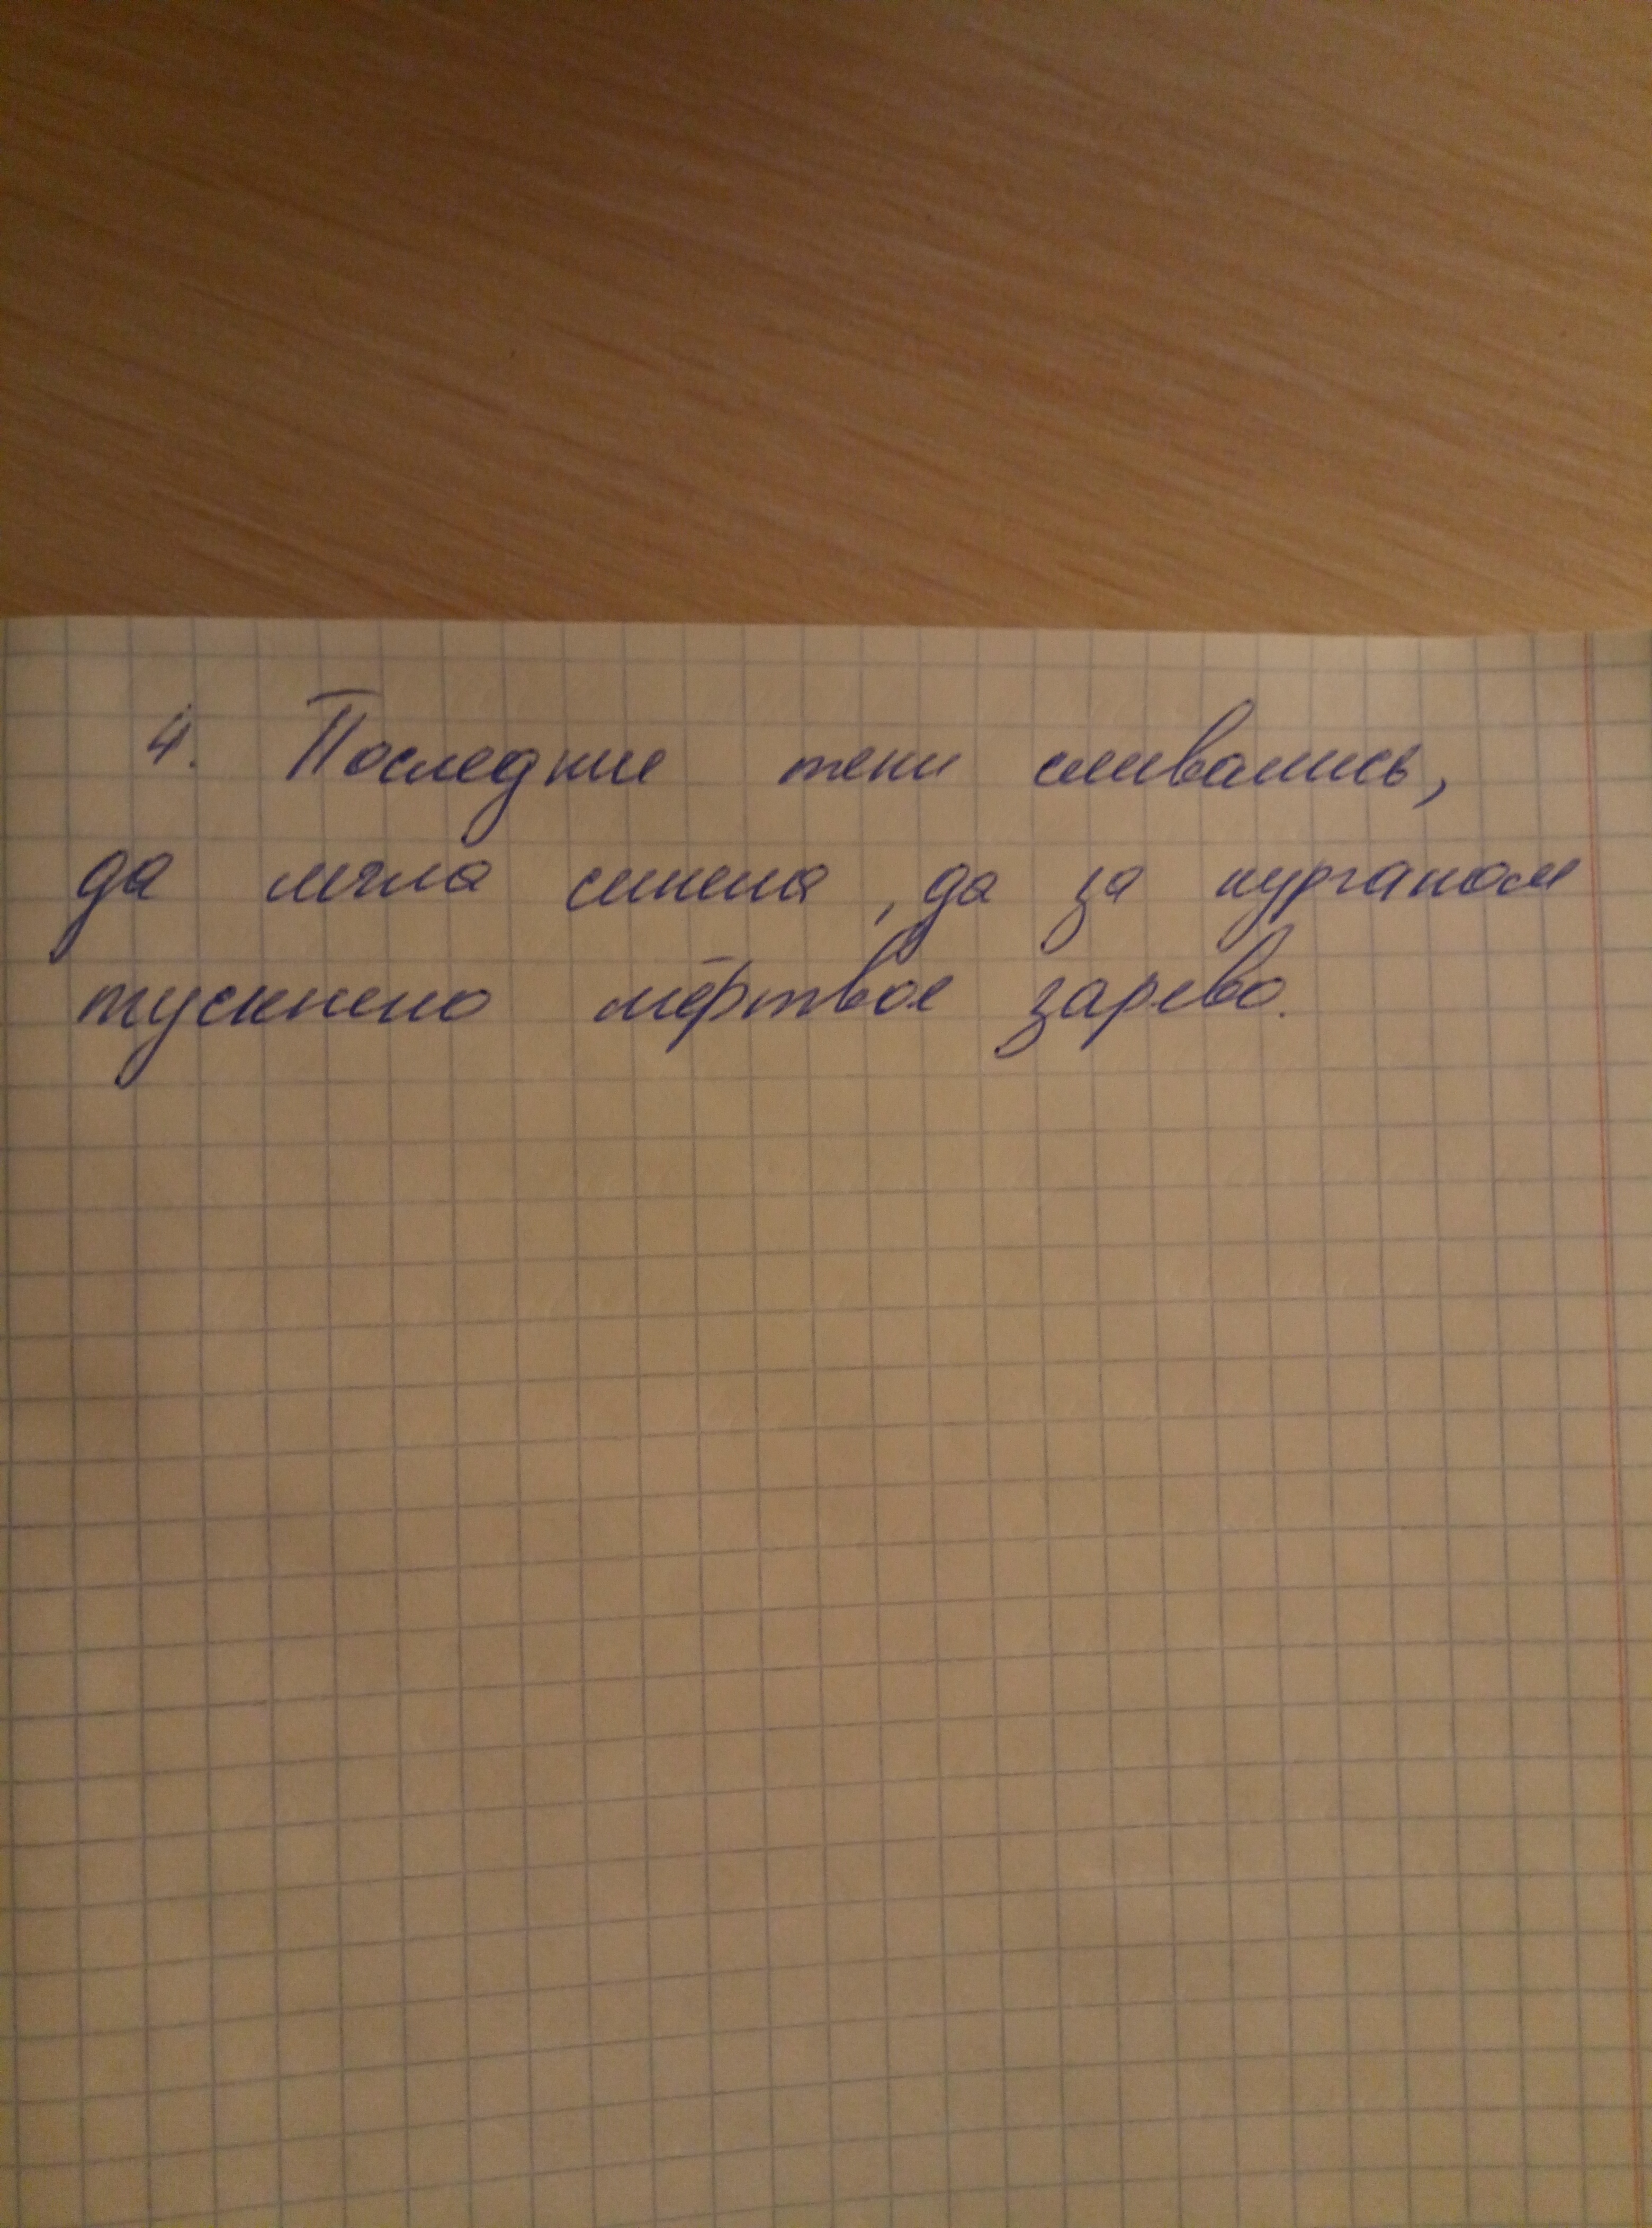 4. Последние тени сливались,
да мгла синела, да за курганом
тускнело мёртвое зарево.